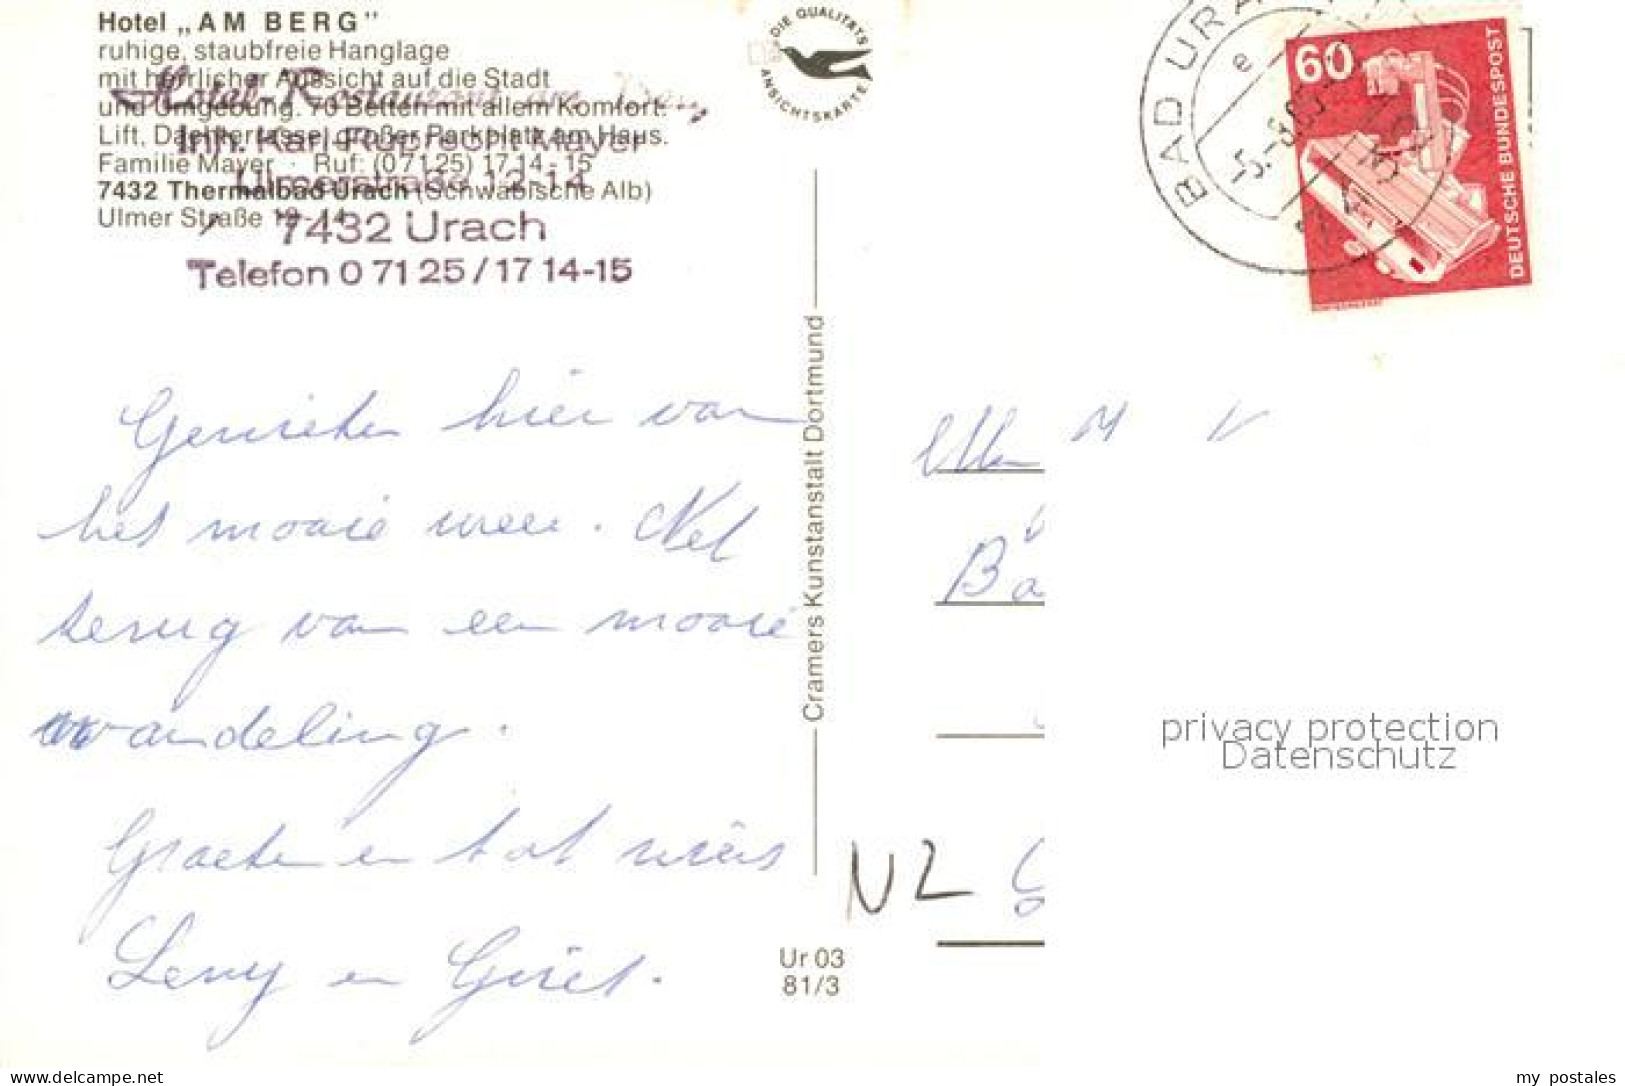 Hotel „AM BERG"
ruhige, staubfreie Hanglage
mit herrlicher Aussicht auf die Stadt
und Umgebung. 70 Betten mit allem Komfort.
Lift, Dachterrasse, großer Parkplatz am Haus.
Familie Mayer · Ruf: (0 71 25) 17 14 - 15
7432 Thermalbad Urach (Schwäbische Alb)
Ulmer Straße 12-14
Hotel-Restaurant am Berg
Inh. Karl-Ruprecht Mayer
Ulmerstraße 12-14
7432 Urach
Telefon 0 71 25 / 17 14-15
DIE QUALITÄTS
ANSICHTSKARTE
BAD URA
e
60
DEUTSCHE BUNDESPOST
Genieten hier van
het mooie weer. Net
terug van een mooie
wandeling.
Groeten en tot ziens
Leny en Griet.
Cramers Kunstanstalt Dortmund
Ur 03
81/3
NL
Ba
privacy protection
Datenschutz
delcampe.net
my_postales